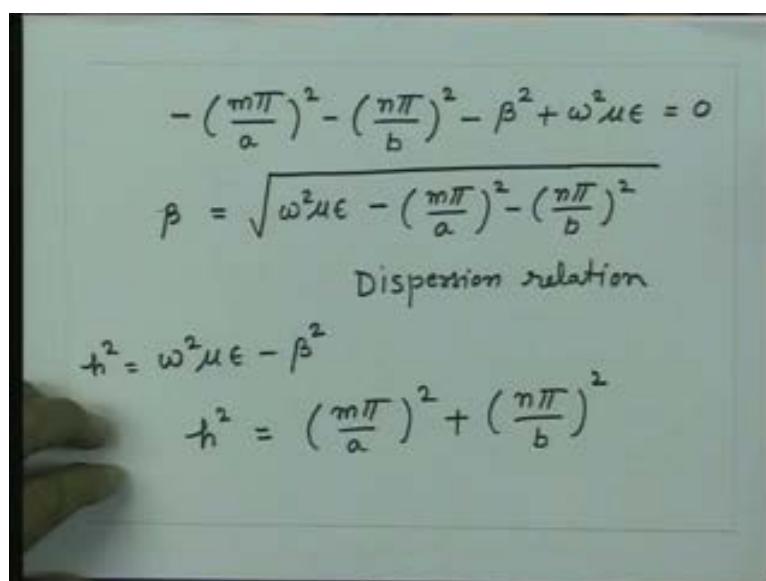 -(mπ/a)² - (nπ/b)² - β² + ω²με = 0
β = √(ω²με - (mπ/a)² - (nπ/b)²)
Dispersion relation
h² = ω²με - β²
h² = (mπ/a)² + (nπ/b)²